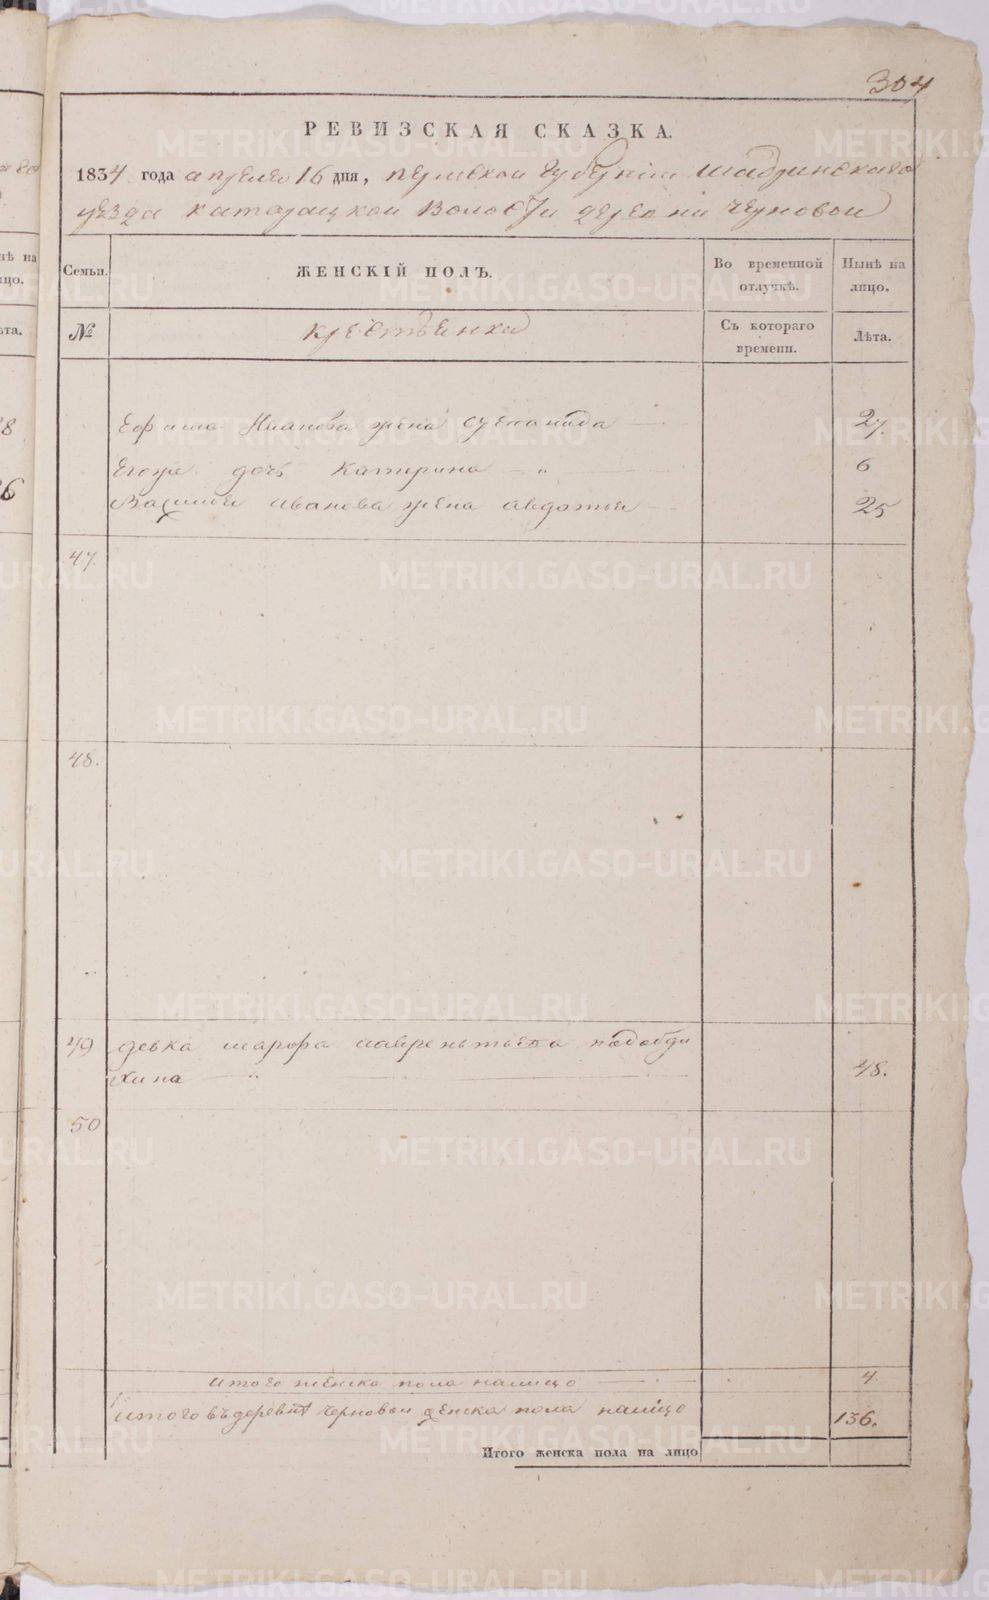 304
РЕВИЗСКАЯ СКАЗКА.
1834 года апреля 16 дня, пермской губернии Шадринскаго
уезда катарацкой волости деревни черновой
Семьи.
ЖЕНСКІЙ ПОЛЪ.
Во временной отлучкѣ.
Нынѣ на лицо.
№
крестьянка
Съ котораго времени.
Лѣта.
Ефима Иванова жена 27.
Егора дочь катерина 6
Василья иванова жена авдотья 25
47.
48.
49 девка марфа лаврентьева
48.
50
итого женска пола налицо 4.
итого въ деревне черновой женска пола налицо 136.
Итого женска пола на лицо
нѣ на
ицо.
ѣта.
METRIKI.GASO-URAL.RU